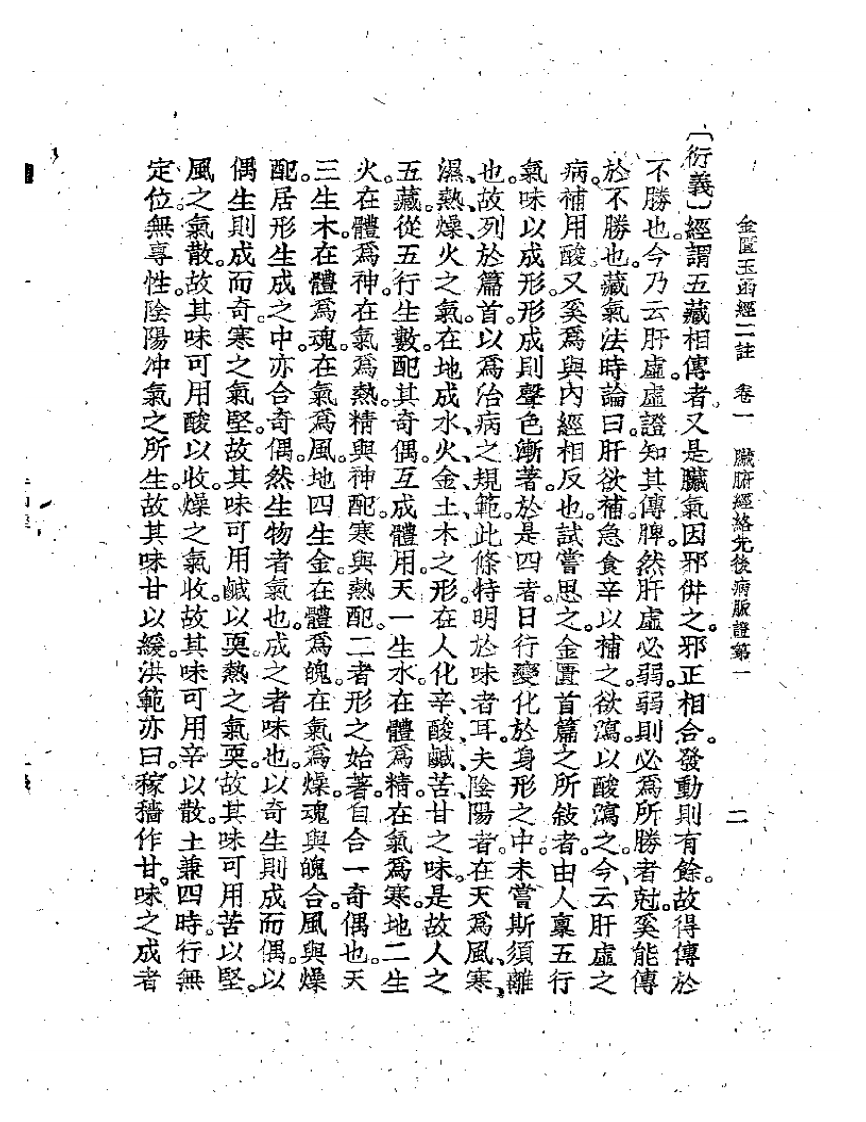 金匱玉函經二註　卷一　臟腑經絡先後病脈證第一　二
〔衍義〕經謂五藏相傳者。又是臟氣因邪併之。邪正相合。發動則有餘。故得傳於
不勝也。今乃云肝虛虛證知其傳脾。然肝虛必弱。弱則必爲所勝者尅。奚能傳
於不勝也。藏氣法時論曰。肝欲補。急食辛以補之。欲瀉。以酸瀉之。今云肝虛之
病。補用酸。又奚爲與內經相反也。試嘗思之。金匱首篇之所敍者。由人稟五行
氣味以成形。形成則聲色漸著。於是四者。日行變化於身形之中。未嘗斯須離
也。故列於篇首。以爲治病之規範。此條特明於味者耳。夫陰陽者。在天爲風、寒、
濕、熱、燥、火之氣。在地成水、火、金、土、木之形。在人化辛、酸、鹹、苦、甘之味。是故人之
五藏。從五行生數。配其奇偶。互成體用。天一生水。在體爲精。在氣爲寒。地二生
火。在體爲神。在氣爲熱。精與神配。寒與熱配。二者形之始著。自合一奇偶也。天
三生木。在體爲魂。在氣爲風。地四生金。在體爲魄。在氣爲燥。魂與魄合。風與燥
配。居形生成之中。亦合奇偶。然生物者氣也。成之者味也。以奇生則成而偶。以
偶生則成而奇。寒之氣堅。故其味可用鹹以耎。熱之氣耎。故其味可用苦以堅。
風之氣散。故其味可用酸以收。燥之氣收。故其味可用辛以散。土兼四時。行無
定位。無專性。陰陽冲氣之所生。故其味甘以緩。洪範亦曰。稼穡作甘。味之成者